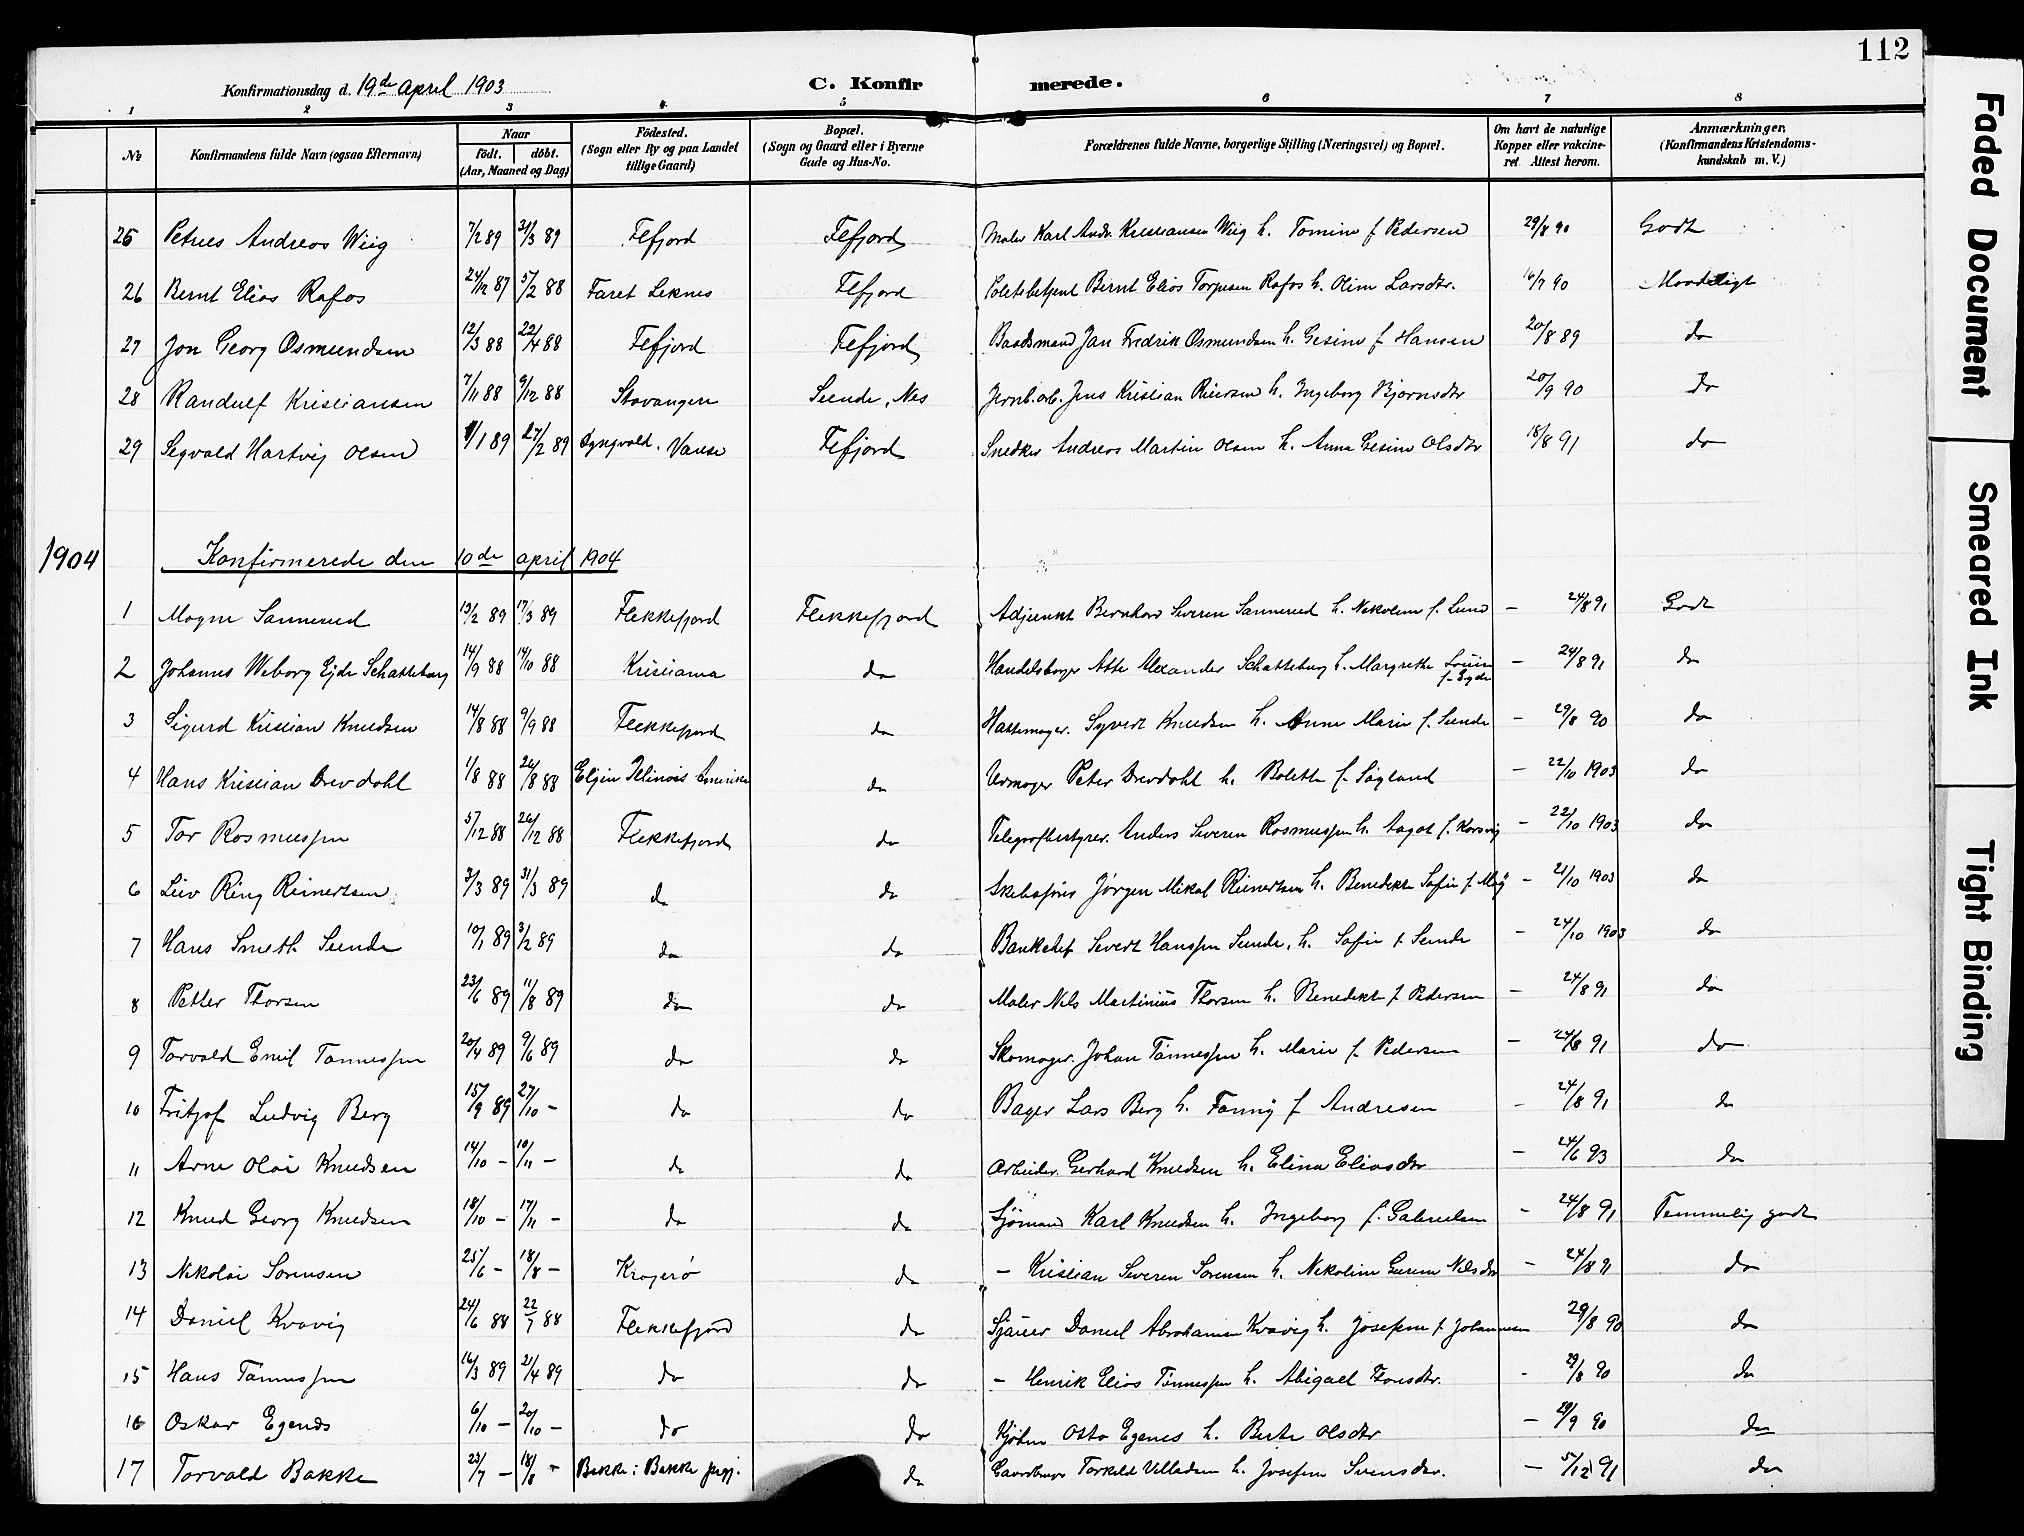 112
Konfirmationsdag d. 19de April 1903
C. Konfirmerede.
1 2 3 4 5 6 7 8
№ Konfirmandens fulde Navn (ogsaa Efternavn) Naar født. døbt. (Aar, Maaned og Dag) Fødested. (Sogn eller By og paa Landet tillige Gaard) Bopæl. (Sogn og Gaard eller i Byerne Gade og Hus-No. Forældrenes fulde Navne, borgerlige Stilling (Næringsvei) og Bopæl. Om havt de naturlige Kopper eller vakcineret Attest herom. Anmærkninger. (Konfirmandens Kristendomskundskab m. V.)
25 Petrus Andreas Wiig 7/2 89 31/3 89 Fefjord Fefjord Maler Karl Andr. Kristiansen Wiig h. Tomine f Pedersen 29/8 90 Godt
26 Bernt Elias Rafos 24/12 87 5/2 88 Faret Leknes Fefjord Politibetjent Bernt Elias Torjusen Rafos h. Oline Larsdtr. 16/7 90 Maadeligt
27 Jon Georg Osmundsen 12/3 88 22/4 88 Fefjord Fefjord Baadsmand Jan Fredrik Osmundsen h. Gesine f Hansen 20/8 89 do
28 Randulf Kristiansen 7/11 88 9/12 88 Stavangere Sunde, Nes Jernb.arb. Jens Kristian Reiersen h. Ingeborg Bjornsdtr 20/9 90 do
29 Segvald Hartvig Olsen 1/1 89 27/2 89 Lyngvold. Vanse Fefjord Snedker Andreas Martin Olsen h. Anna Gesine Olsdtr 18/8 91 do
1904 Konfirmerede den 10de april 1904
1 Magne Sannerud 13/2 89 17/3 89 Flekkefjord Flekkefjord Adjunkt Bernhard Severin Sannerud h. Nikoline f. Lund - 24/8 91 Godt
2 Johannes Weborg Ejde Schatteburg 14/9 88 14/10 88 Kristiania do Handelsborger Atte Alexander Schatteburg h. Margrethe Louise f. Eyde - 24/8 91 do
3 Sigurd Kristian Knudsen 14/8 88 9/9 88 Flekkefjord do Hattemager. Syvert Knudsen h. Anne Marie f. Sunde - 29/8 90 do
4 Hans Kristian Drevdahl 1/8 88 26/8 88 Elgin Illinois Amerika do Urmager Peter Drevdahl h. Bolette f. Søyland - 22/10 1903 do
5 Tor Rasmussen 5/12 88 26/12 88 Flekkefjord do Telegrafbestyrer. Anders Severin Rasmussen h. Aagot f. Korsvig - 22/10 1903 do
6 Leiv Ring Reinertsen 3/3 89 31/3 89 do do Skibsfører Jørgen Mikal Reinertsen h. Benedikte Sofie f Moy - 21/10 1903 do
7 Hans Smith Sunde 10/1 89 3/2 89 do do Bankchef Severt Hanssen Sunde, h. Sofie f Sunde - 24/10 1903 do
8 Petter Thorsen 23/6 89 11/8 89 do do Maler Nels Martinius Thorsen h. Benedikte f Pedersen - 24/8 91 do
9 Torvald Emil Tønnessen 20/4 89 9/6 89 do do Skomager. Johan Tønnessen h. Marie f. Pedersen - 24/8 91 do
10 Fritjof Ludvig Berg 15/9 89 27/10 - do do Bager Lars Berg h. Fanny f Andresen - 24/8 91 do
11 Arne Olai Knudsen 14/10 - 10/11 - do do Arbeider Gerhard Knudsen h. Elina Eliasdtr - 24/6 93 do
12 Knud Georg Knudsen 18/10 - 17/11 - do do Sjømand Karl Knudsen h. Ingeborg f. Gabrielsen - 24/8 91 Temmelig godt
13 Nikolai Sørensen 25/6 - 18/8 - Kragerø do - Kristian Severin Sørensen h. Nikoline Gurine Nilsdtr - 24/8 91 do
14 Daniel Kvavig 24/6 88 22/7 88 Flekkefjord do Sjauer Daniel Abrahamsen Kvavig h. Josefine f Johannesen 29/8 90 do
15 Hans Tønnessen 16/3 89 21/4 89 do do - Henrik Elias Tønnessen h. Abigael Tønsdtr. - 29/8 90 do
16 Oskar Egenes 6/10 - 20/10 - do do Kjøbm Otto Egenes h. Berte Olsdtr - 29/9 90 do
17 Torvald Bakke 23/7 - 18/8 - Bakke i Bakke prgj. do Gaardbruger Torkild Villadsen h. Josefine Svensdtr. - 5/12 91 do
Faded Document
Smeared Ink
Tight Binding